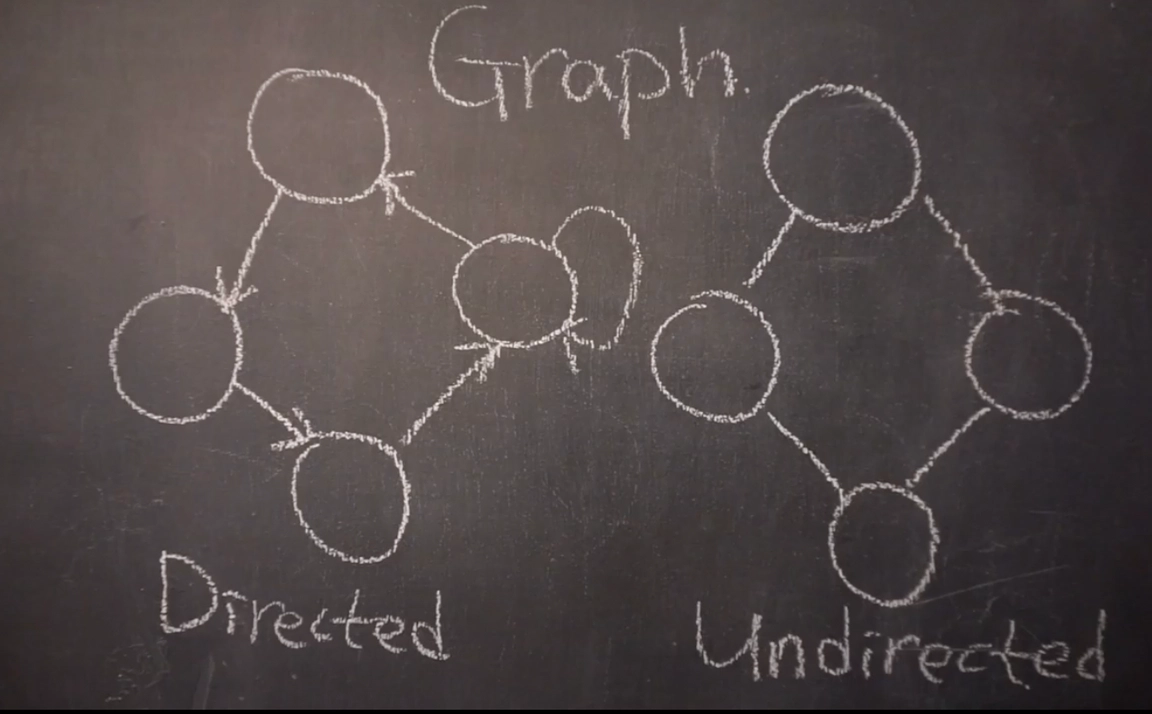 Graph.
Directed
Undirected